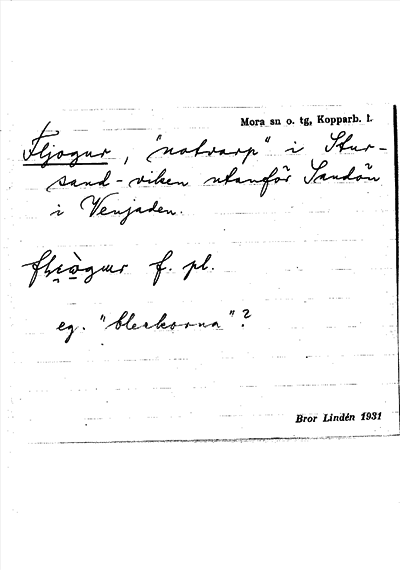 Mora sn o. tg, Kopparb. l.
Fljogur, "notvarp" i Stur-
sand-viken utanför Sandön
i Venjaden.
f. pl.
eg. "bleckorna"?
Bror Lindén 1931